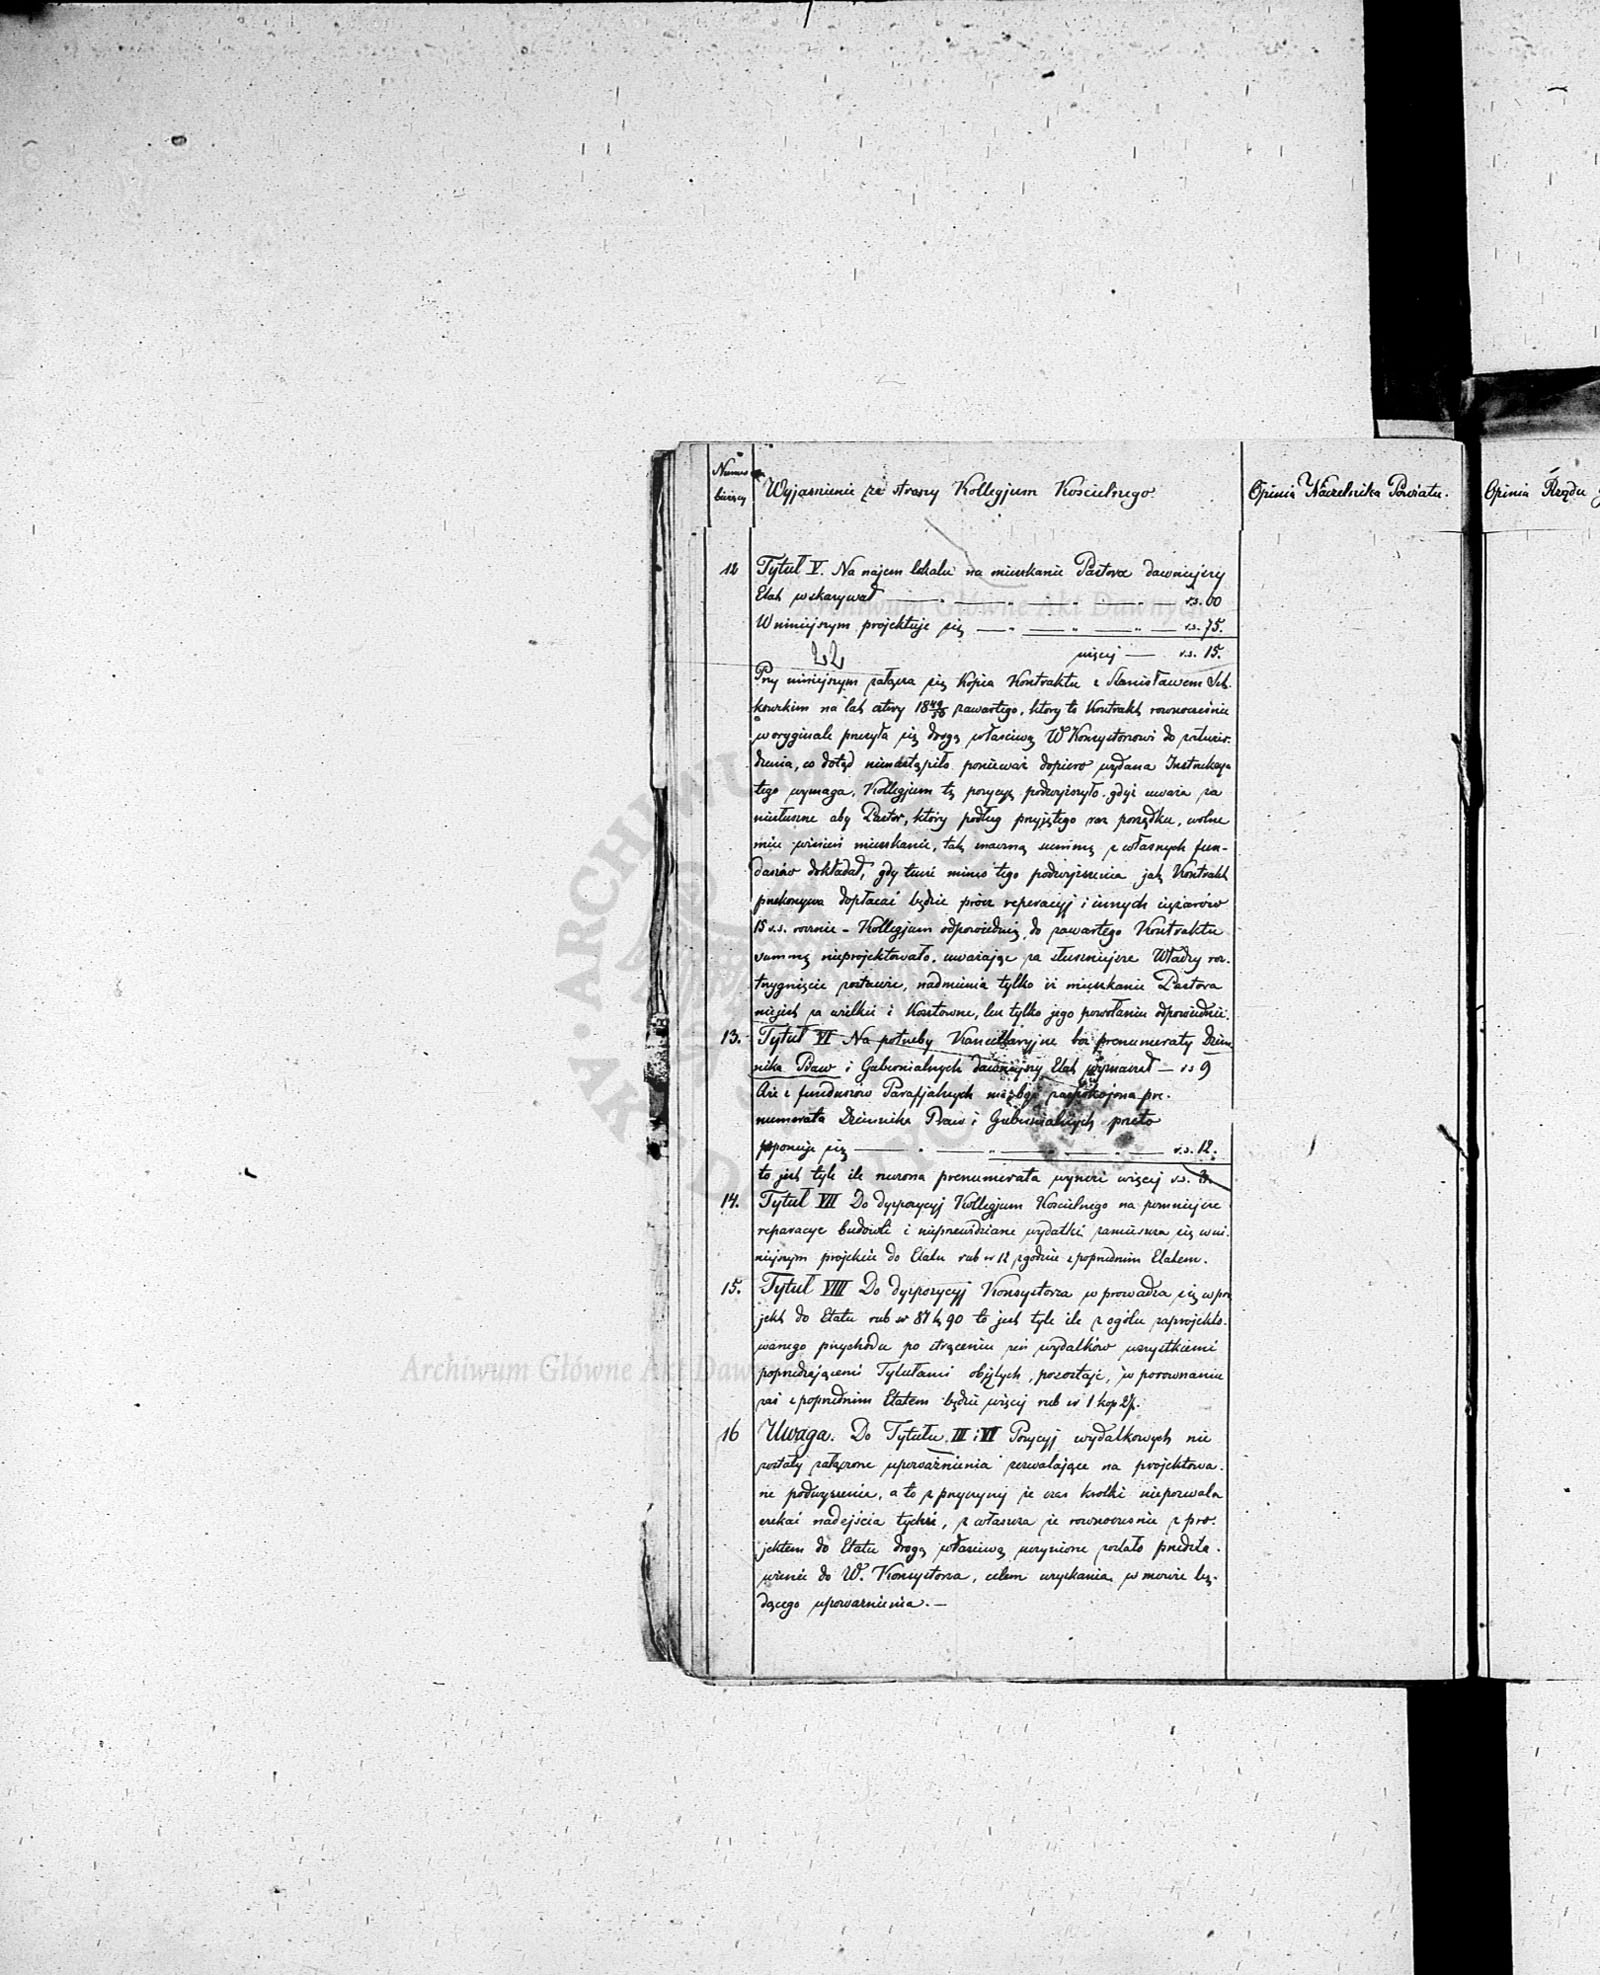 Numer
bieżący
Wyjasnienie ze strony Kollegjum Koscielnego.
Opinia Naczelnika Powiatu.
Opinia Rządu
12
Tytuł V. Na najem lokalu na mieszkanie Pastora dawniejszy
Etat wskazywał — " — " — " — " — r.s. 60
W niniejszym projektuje się — " — " — " — r.s. 75.
więcej — r.s. 15.
Przy niniejszym załącza się Kopia Kontraktu z Stanisławem
na lat cztery 18 zawartego, ktory to Kontrakt rownocześnie
w oryginale przesyła się drogą właściwą W Konsystorzowi do zatwier-
dzenia, co dotąd nienastąpiło ponieważ dopiero wydana Instrukcya
tego wymaga. Kollegjum tę pozycyę podwyższyło gdyż uważa za
niesłuszne aby Pastor, który podług przyjętego raz porządku, wolne
miec winien mieszkanie, tak znaczną summę z własnych fun-
duszów dokładał, gdy tenże mimo tego podwyższenia jak Kontrakt
przekonywa dopłacać będzie prócz reperacyj i innych ciężarów
15 r.s. rocznie - Kollegjum odpowiednią do zawartego Kontraktu
summę nieprojektowało, uważając za słuszniejsze Władzy roz-
trzygnięcie zostawić, nadmienia tylko iż mieszkanie Pastora
niejest za wielkie i Kosztowne, lecz tylko jego powołaniu odpowiednie.
13.
Tytuł VI Na potrzeby Kancellaryjne bez prenumeraty Dzien
nika Praw i Gubernialnych dawniejszy Etat wyznaczał — r s 9
Aże z funduszów Parafjalnych ma być zaspokojona pre-
numerata Dziennika Praw i Gubernialnych przeto
proponuje się — " — " — " — " — r.s. 12.
to jest tyle ile roczna prenumerata wynosi więcej r.s. 3.
14.
Tytuł VII Do dyspozycyj Kollegjum Koscielnego na pomniejsze
reparacye budowli i nieprzewidziane wydatki zamieszcza się w ni-
niejszym projekcie do Etatu rub sr 12 zgodnie z poprzednim Etatem.
15.
Tytuł VIII Do dyspozycyj Konsystorza wprowadza się w pro
jekt do Etatu rub sr 87 k 90 to jest tyle ile z ogółu zaprojekto-
wanego przychodu po strąceniu zeń wydatków wszystkiemi
poprzedzającemi Tytułami objętych, pozostaje, w porownaniu
zaś z poprzednim Etatem będzie więcej rub sr 1 kop
16
Uwaga. Do Tytułu III i VI Pozycyj wydatkowych nie
zostały załączone upoważnienia zezwalające na projektowa-
ne podwyższenie, a to z przyczyny że czas krotki niepozwala
czekać nadejścia tychże, zwłaszcza że rownocześnie z pro-
jektem do Etatu drogą właściwą uczynione zostało przedsta-
wienie do W. Konsystorza, celem uzyskania w mowie bę-
dącego upoważnienia. —
Archiwum Główne Akt Dawnych
Archiwum Główne Akt Dawnych